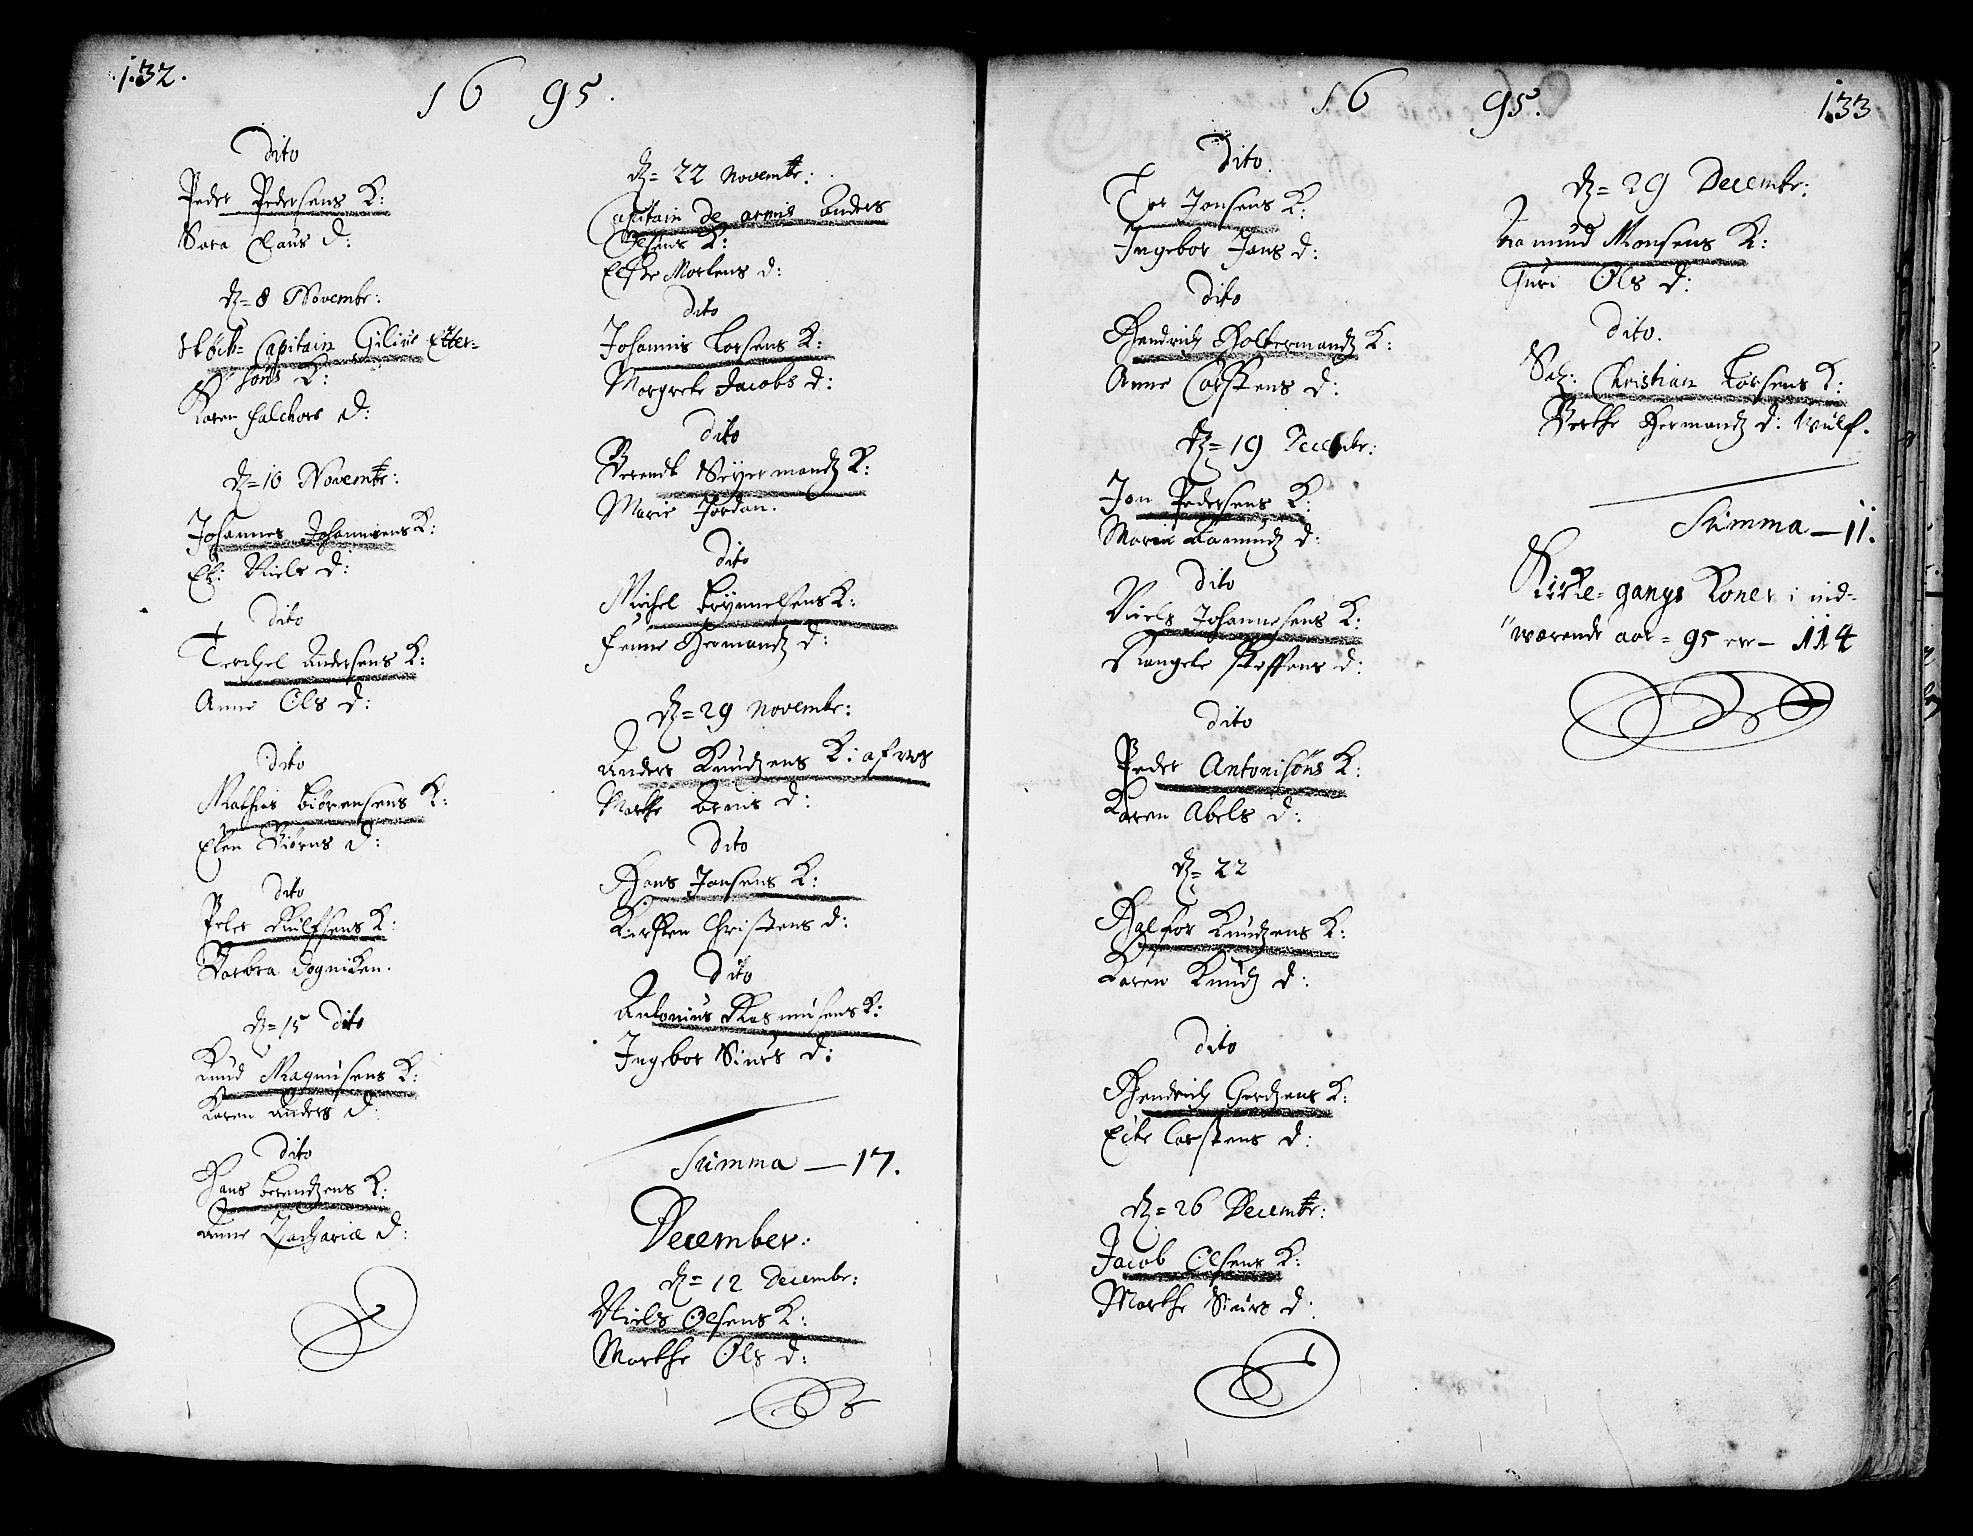 132.
16 95.
Dito
Peder Pedersens K:
Sara Claus D:
d= 8 Novembr:
Capitain Gilius Etter=
søns K:
Karen Falckors D:
d= 10 Novembr:
Johannes Johannisens K:
El: Niels D:
Dito
Terchel Andersens K:
Anne Ols D:
Dito
Mathis Biørensens K:
Elen Biørns D:
Dito
Peter Rulfsens K:
Barbra Dogniken.
d= 15 Dito
Knud Magnusens K:
Karen Anders D:
Dito
Hans Berendtzens K:
Anne Zachariæ D:
d= 22 Novembr:
Capitain de armis Anders
Olsens K:
Elsche Mortens D:
Dito
Johannis Larsens K:
Margrete Jacobs D:
Dito
Berendt Meyermandz K:
Marie Jordan.
Dito
Michel Brynnelsens K:
Fenne Hermandz D:
d= 29 Novembr:
Anders Knudzens K: af
Marthe D:
Dito
Hans Jansens K:
Kirsten Christens D:
Dito
Antonius Rasmusens K:
Ingebor Siurs D:
Summa — 17.
December:
d= 12 Decembr:
Niels Olsens K:
Marthe Ols D:
16 95.
133
Dito.
Tor Jonsens K:
Ingebor Jans D:
Dito
Hendrich Holtermandz K:
Anne Carstens D:
d= 19 Decembr:
Jon Pedersens K:
Maren Aamundz D:
Dito
Niels Johannesens K:
Stangele Steffens D:
Dito
Peder Antonisøns K:
Karen Abels D:
d= 22
Halfor Knudzens K:
Karen Knudz D:
Dito
Hendrich Gerdzens K:
Elke Carstens D:
d= 26 Decembr:
Jacob Olsens K:
Marthe Siurs D:
d= 29 Decembr:
Aamund Monsens K:
Guri Ols D:
Dito.
Sal: Christian Larsens K:
Berthe Hermandz D: Wulf.
Summa — 11.
Kirke=gangs Koner i ind=
"værende aar = 95 er — 114